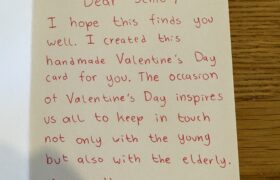 Dear Senior,
I hope this finds you
well. I created this
handmade Valentine's Day
card for you. The occasion
of Valentine's Day inspires
us all to keep in touch
not only with the young
but also with the elderly.